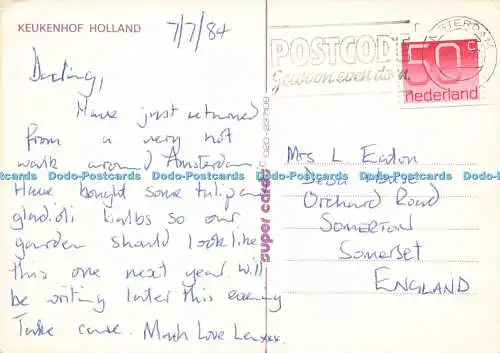 KEUKENHOF HOLLAND
7/7/84
Darling,
Have just returned
from a very hot
walk around Amsterdam
Have bought some tulip and
gladioli bulbs so our
garden should look like
this one next year. Will
be writing later this evening
Take care. Much Love Len xxx
super cards
020-237108
AMSTERDAM
POSTCODE
gewoon even doen
50 c
nederland
Mrs L. Eaton
House
Orchard Road
SOMERTON
Somerset
ENGLAND
Dodo-Postcards Dodo-Postcards Dodo-Postcards Dodo-Postcards Dodo-Postcards